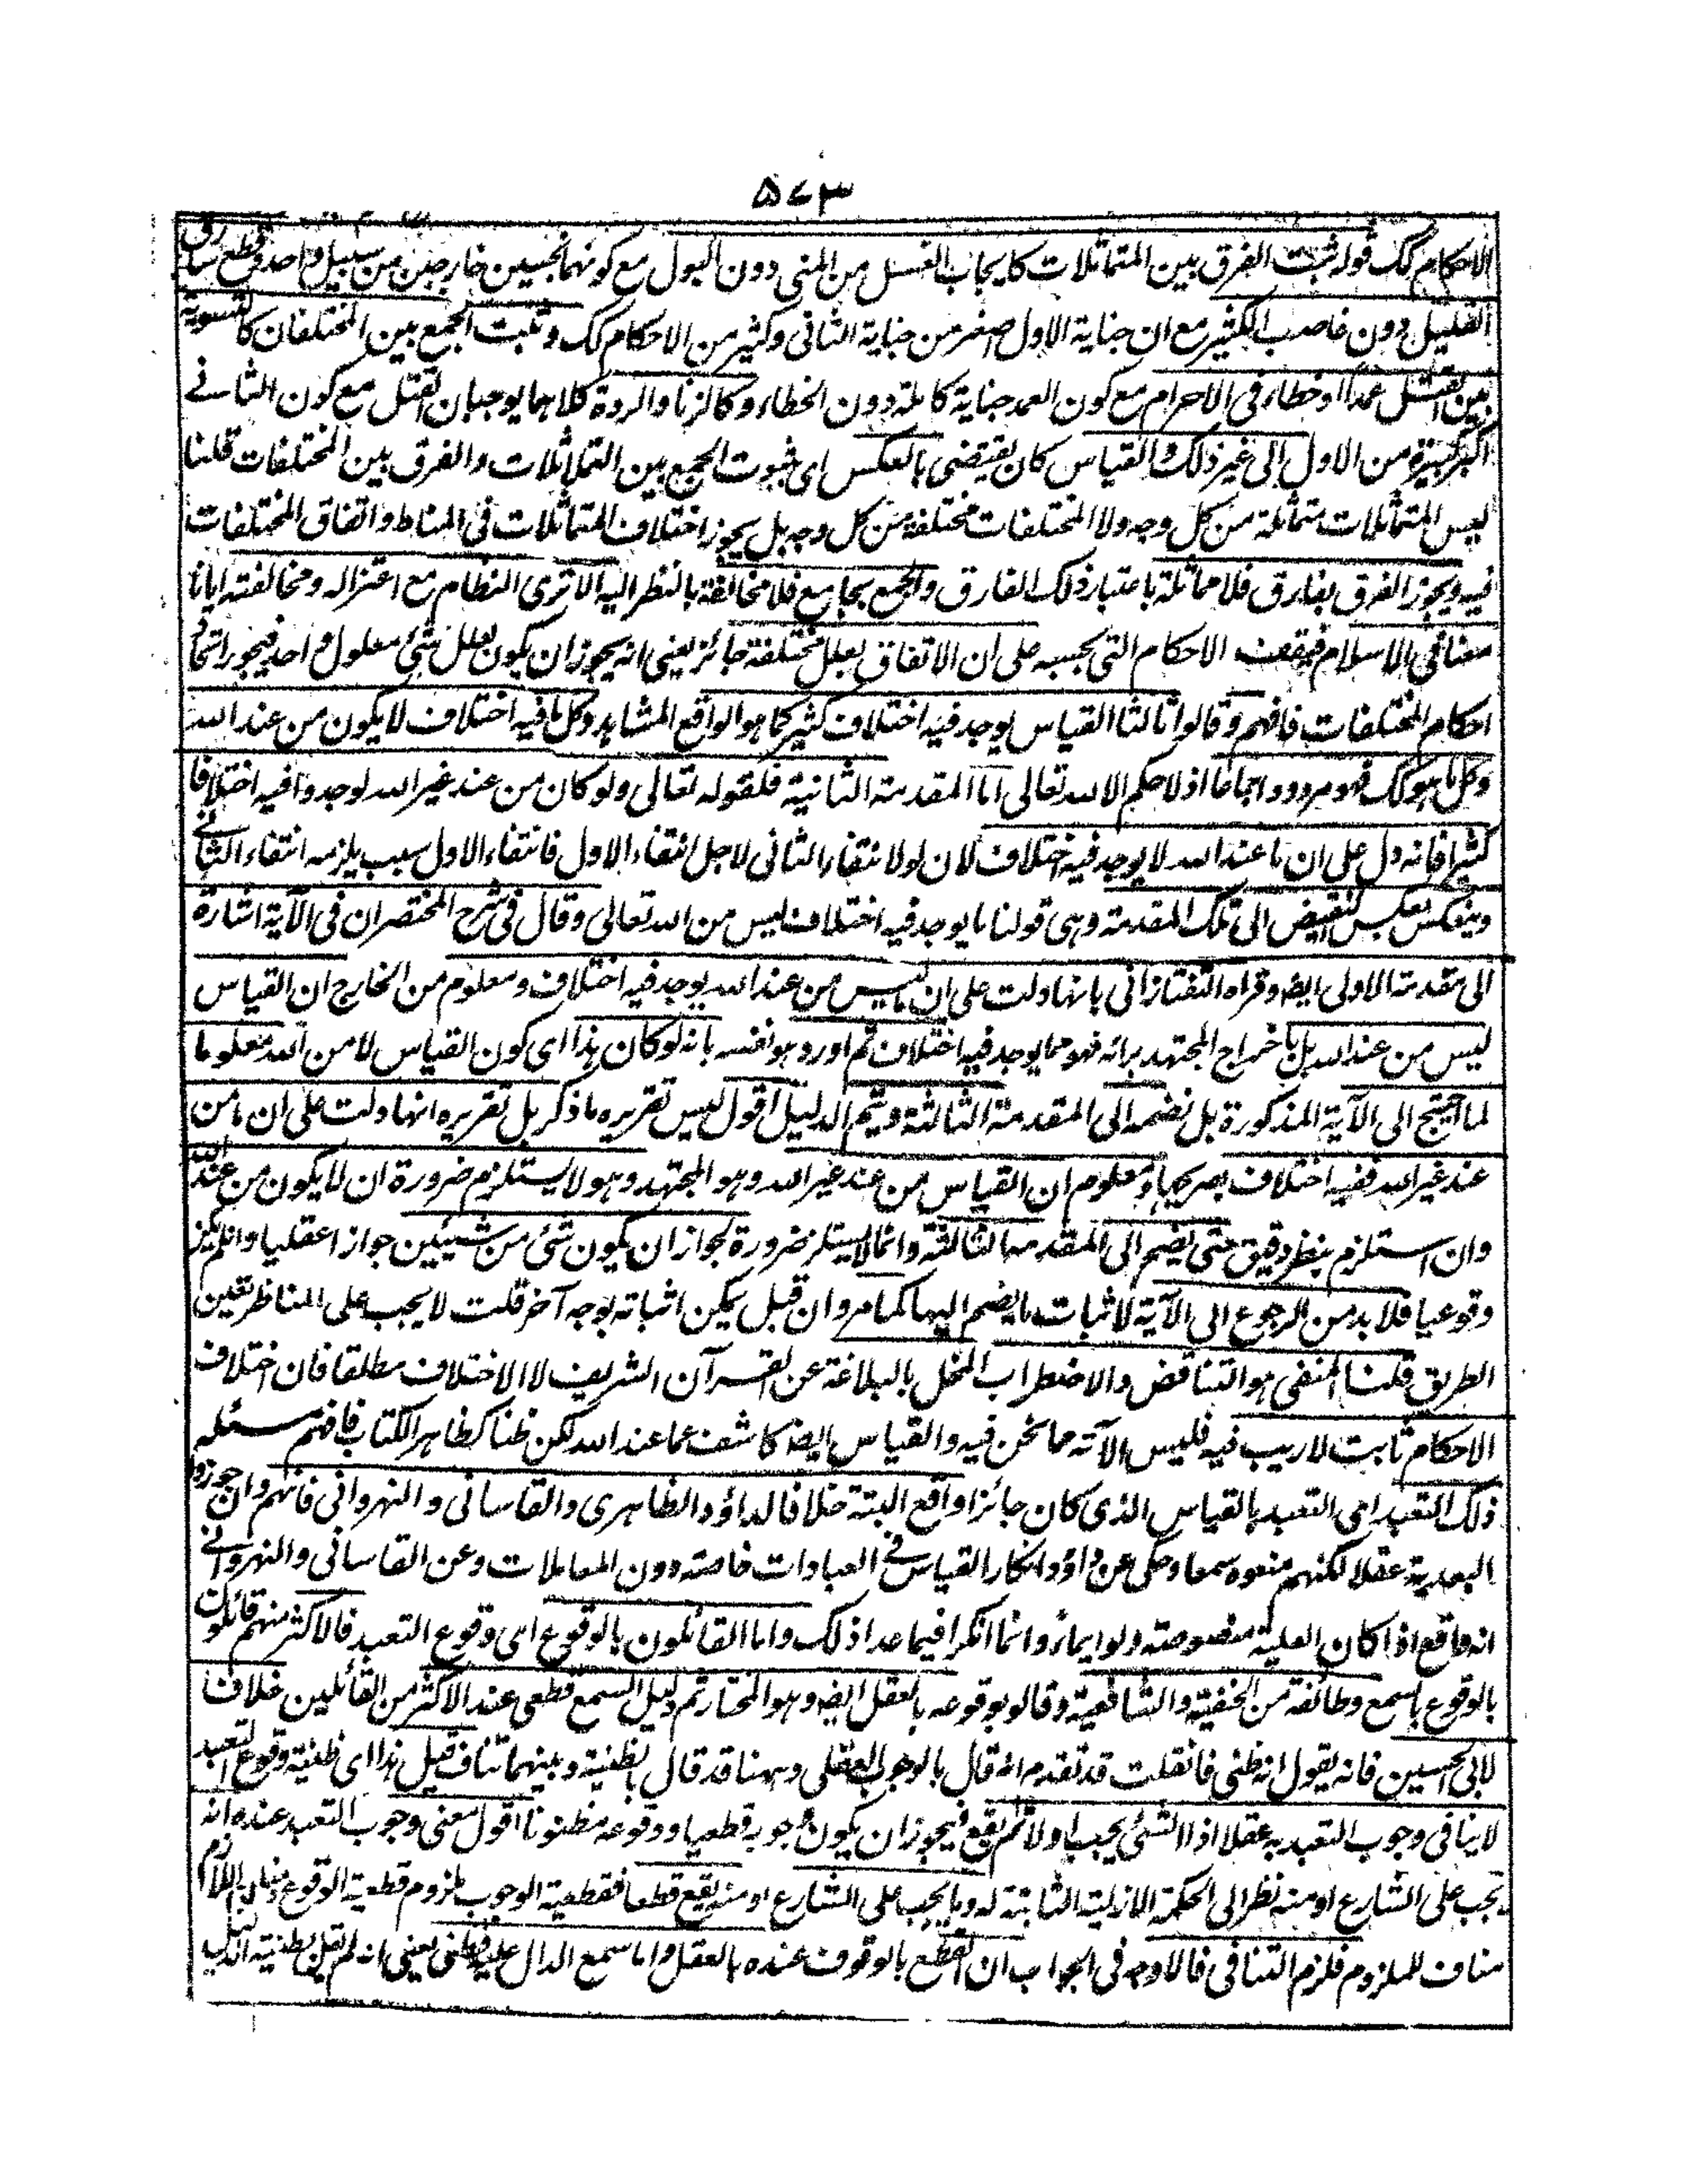 ۵۷۳
الاحکام کک قوله ثبت الفرق بین المتماثلات کایجاب الغسل من المنی دون البول مع کونهما نجسین خارجین من سبیل واحد وقطع سارق
القلیل دون غاصب الکثیر مع ان جنایة الاول اصغر من جنایة الثانی وکثیر من الاحکام کک وثبت الجمع بین المختلفان کالتسویة
بین القتل عمدا او خطاء فی الاحرام مع کون العمد جنایة کاملة دون الخطاء وکالزنا والردة کلاهما یوجبان القتل مع کون الثانے
اکبر کبیرة من الاول الی غیر ذلک والقیاس کان یقتضی بالعکس ای ثبوت الجمع بین المتماثلات والفرق بین المختلفات قلنا
لیس المتماثلات متماثلة من کل وجه ولا المختلفات مختلفة من کل وجه بل یجوز اختلاف المتماثلات فی المناط واتفاق المختلفات
فیه ویجوز الفرق بفارق فلا مماثلة باعتبار ذلک الفارق والجمع بجامع فلا مخالفة بالنظر الیه الا تری النظام مع اعتزاله ومخالفته ایانا
معنا فی الاسلام فیقف الاحکام التی بحسبه علی ان الاتفاق بعلل مختلفة جائز یعنی انه یجوز ان یکون بعلل شئی معلول واحد فیجوز اتحاد
احکام المختلفات فافهم وقالوا ثالثا القیاس یوجد فیه اختلاف کثیر کما هو الواقع المشاهد وکل ما فیه اختلاف لا یکون من عند الله
وکل ما هو کک فهو مردود اجماعا اذ لا حکم الا لله تعالی اما المقدمة الثانیة فلقوله تعالی ولو کان من عند غیر الله لوجدوا فیه اختلافا
کثیرا فانه دل علی ان ما عند الله لا یوجد فیه اختلاف لان لو لانتفاء الثانی لاجل انتفاء الاول فانتفاء الاول سبب یلزمه انتفاء الثانے
وینعکس بعکس النقیض الی تلک المقدمة وهی قولنا ما یوجد فیه اختلاف لیس من الله تعالی وقال فی شرح المختصر ان فی الآیة اشارة
الی مقدمة الاولی ایضا وقراه التفتازانی بانها دلت علی ان ما لیس من عند الله یوجد فیه اختلاف ومعلوم من الخارج ان القیاس
لیس من عند الله بل باخراج المجتهد برائه فهو مما یوجد فیه اختلاف ثم اورد هو نفسه بانه لو کان هذا ای کون القیاس لا من الله معلوما
لما احتیج الی الآیة المذکورة بل نضمه الی المقدمة الثالثة ویتم الدلیل اقول لیس تقریره ما ذکر بل تقریره انها دلت علی ان ما من
عند غیر الله ففیه اختلاف بصریحها ومعلوم ان القیاس من عند غیر الله وهو المجتهد وهو لا یستلزم ضرورة ان لا یکون من عند الله
وان استلزم بنظر دقیق حتی یضم الی المقدمة الثالثة وانما لا یستلزم ضرورة لجواز ان یکون شئی من شیئین جوازا عقلیا وان لم یجز
وقوعیا فلا بد من الرجوع الی الآیة لاثبات ما یضم الیها کما مر وان قیل یمکن اثباته بوجه آخر قلت لا یجب علی المناظر تعین
الطریق قلنا المنفی هو التناقض والاضطراب المخل بالبلاغة عن القرآن الشریف لا الاختلاف مطلقا فان اختلاف
الاحکام ثابت لا ریب فیه فلیس الآیة مما نحن فیه والقیاس ایضا کاشف عما عند الله لکن ظنا کظاهر الکتاب فافهم مسئله
ذلک التعبد ای التعبد بالقیاس الذی کان جائزا واقع البتة خلافا لداؤد الظاهری والقاسانی والنهروانی فانهم وان جوزوا
التعبد به عقلا لکنهم منعوه سمعا وحکی عن داؤد انکار القیاس فے العبادات خاصة دون المعاملات وعن القاسانی والنهروانے
انه واقع اذا کان العلیة منصوصة ولو ایماء وانما انکرا فیما عدا ذلک واما القائلون بالوقوع ای وقوع التعبد فالاکثر منهم قائلون
بالوقوع بالسمع وطائفة من الحنفیة والشافعیة وقالو بوقوعه بالعقل ایضا وهو المختار ثم دلیل السمع قطعی عند الاکثر من القائلین خلافا
لابی الحسین فانه یقول انه ظنی فان قلت قد تقدم انه قال بالوجوب العقلی وههنا قد قال بالظنیة وبینهما تناف قیل هذا ای ظنیة وقوع التعبد
لا ینافی وجوب التعبد به عقلا اذ الشئی یجب اولا ثم یقع فیجوز ان یکون وجوبه قطعیا ووقوعه مظنونا اقول معنی وجوب التعبد عنده انه
یجب علی الشارع او منه نظرا الی الحکمة الازلیة الثابتة له وما یجب علی الشارع او منه یقع قطعا فقطعیة الوجوب ملزوم قطعیة الوقوع ومنافی اللازم
مناف للملزوم فلزم التنافی فالاوجه فی الجواب ان القطع بالوقوف عنده بالعقل واما سمع الدال علیه فظنی یعنی انه لم یقل بظنیة الدلیل